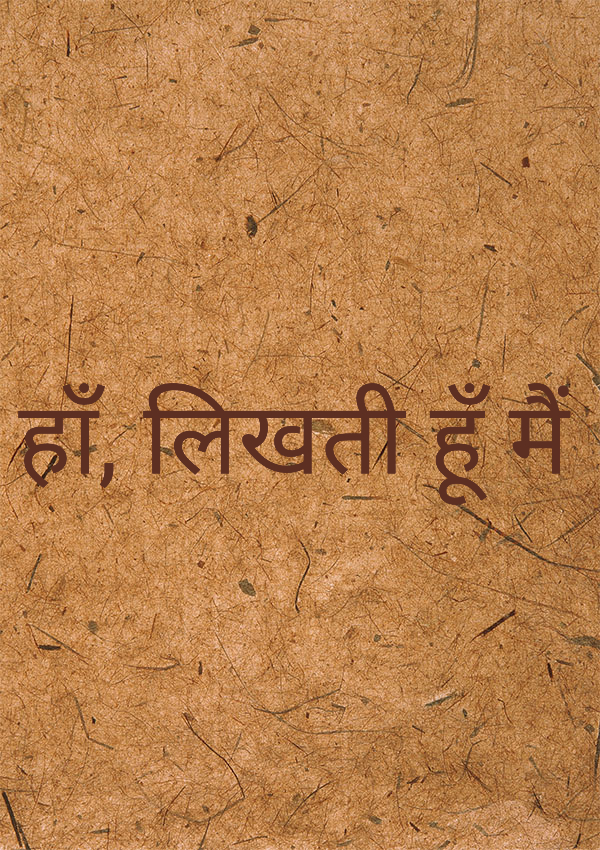 हाँ, लिखती हूँ मैं